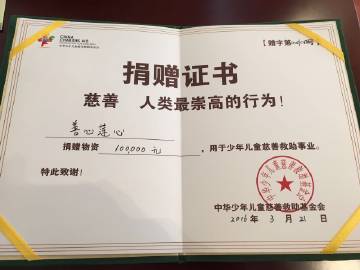 CHINA
【赠字第
捐赠证书
慈善 人类最崇高的行为！
善心莲心
捐赠物资 100,000 元 ，用于少年儿童慈善救助事业。
特此致谢！
中华少年儿童慈善救助基金会
2016 年 3 月 21 日